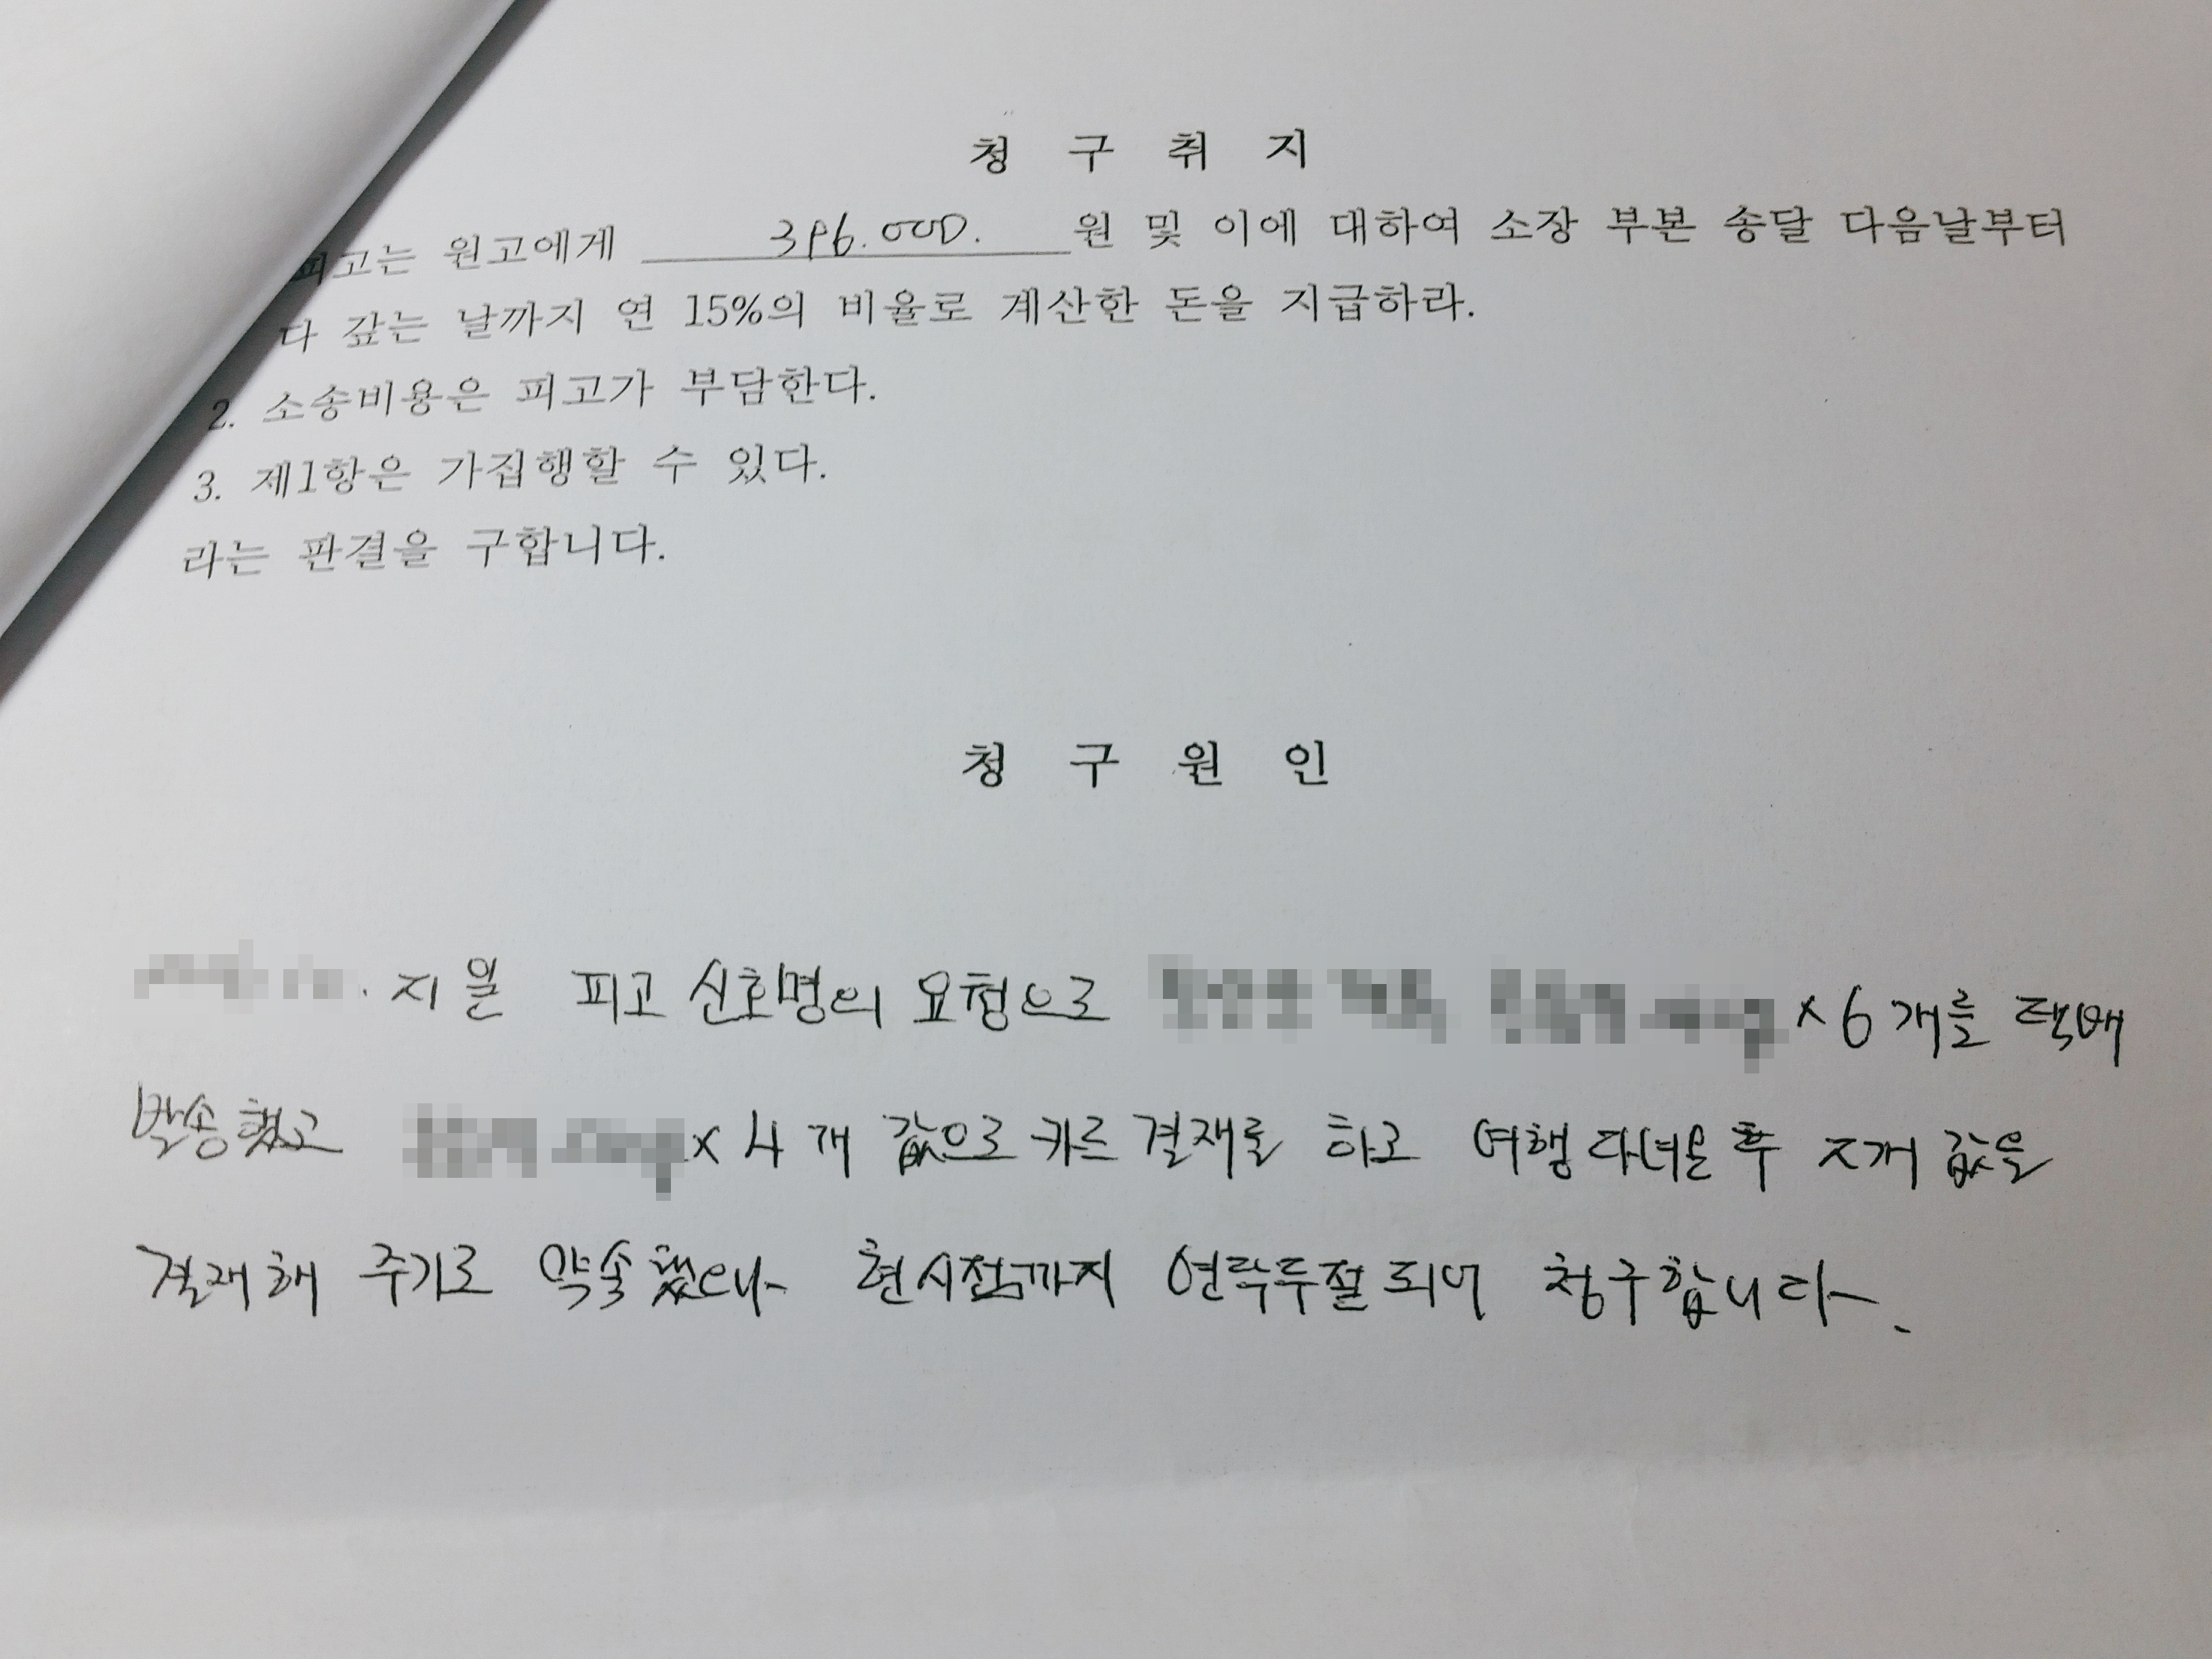 청 구 취 지
피고는 원고에게 396.000. 원 및 이에 대하여 소장 부본 송달 다음날부터
다 갚는 날까지 연 15%의 비율로 계산한 돈을 지급하라.
2. 소송비용은 피고가 부담한다.
3. 제1항은 가집행할 수 있다.
라는 판결을 구합니다.
청 구 원 인
피고 신호명의 요청으로 x 6개를 택배
발송했고 x 4개 값으로 카드결재를 하고 여행 다녀온 후 값을
결재해 주기로 약속했으나 현시점까지 연락두절되어 청구합니다.